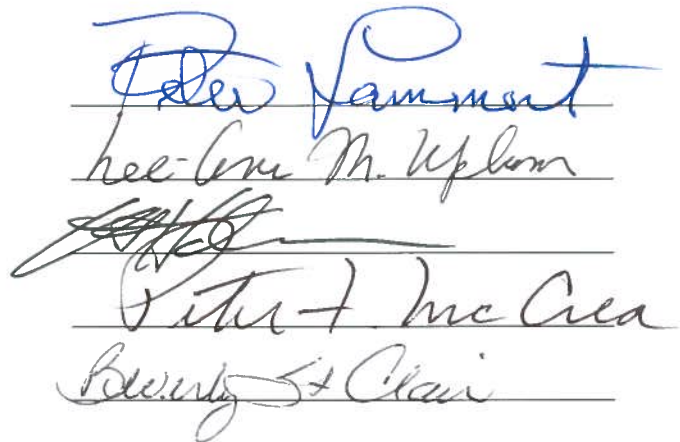 Peter Lammont
Lee-Ann M. Upham
Peter F. McCrea
Beverly St Clair